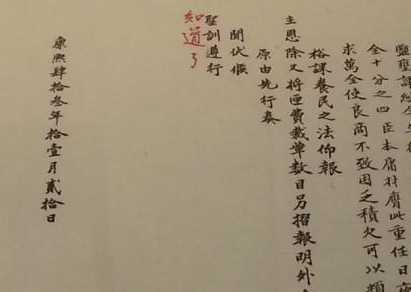 鹽壅課
全十分之四臣本庸材膺此重任日夜
求萬全使良商不致困乏積欠可以
裕課養民之法仰報
主恩除又將匣費裁革數目另摺報明外
原由先行奏
聞伏候
聖訓遵行
知道了
康熙肆拾叁年拾壹月貳拾日